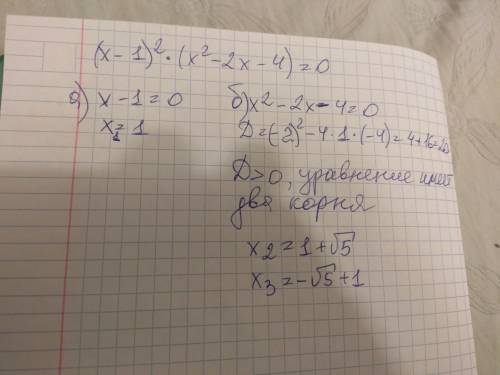 (x - 1)² · (x² - 2x - 4) = 0
а) x - 1 = 0
x₁ = 1
б) x² - 2x - 4 = 0
D = (-2)² - 4 · 1 · (-4) = 4 + 16 = 20
D > 0, уравнение имеет
два корня
x₂ = 1 + √5
x₃ = -√5 + 1